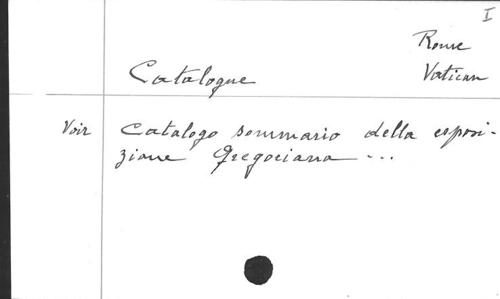 I
Rome
Vatican
Catalogue
Voir Catalogo sommario della esposi-
zione Gregoriana ...